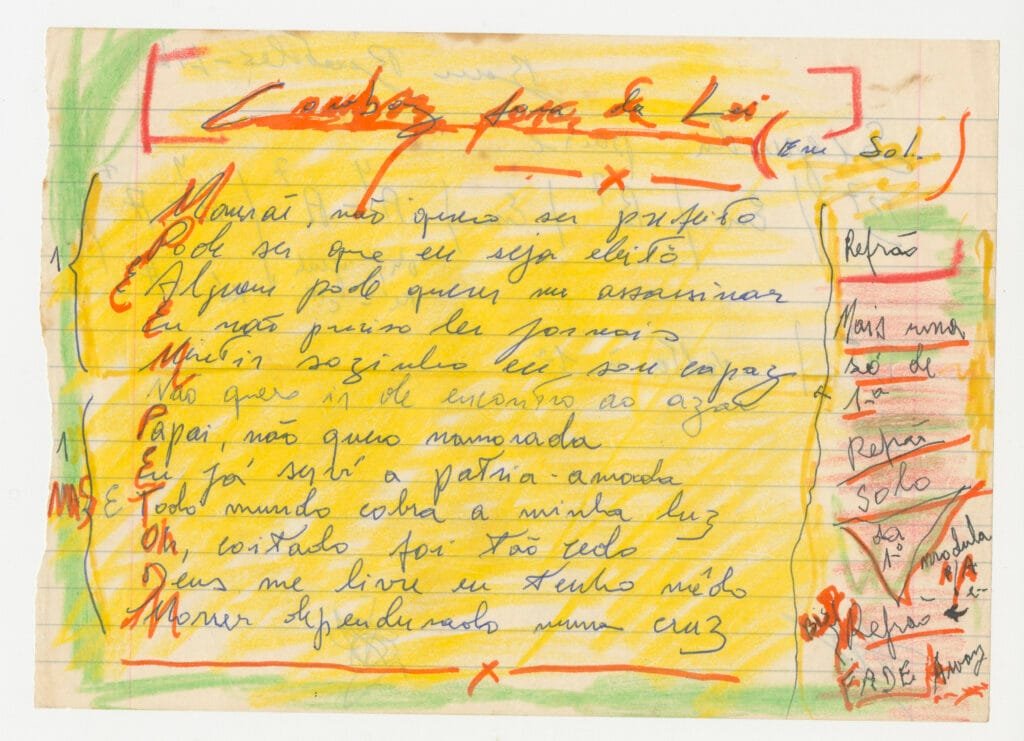 Cowboy fora da Lei
(Em Sol)
Mamãe, não quero ser prefeito
Pode ser que eu seja eleito
E Alguem pode querer me assassinar
Eu não preciso ler jornais
Mentir sozinho eu sou capaz
Não quero ir de encontro ao azar
Papai, não quero namorada
Eu já servi a patria-amada
E Todo mundo cobra a minha luz
Oh, coitado foi tão cedo
Deus me livre eu tenho mêdo
Morrer dependurado numa cruz
1
1
MAS
Refrão
Mais uma
só de
1ª
Refrão
Solo
1º
modula
p/A
Bis
Refrão
FADE Away